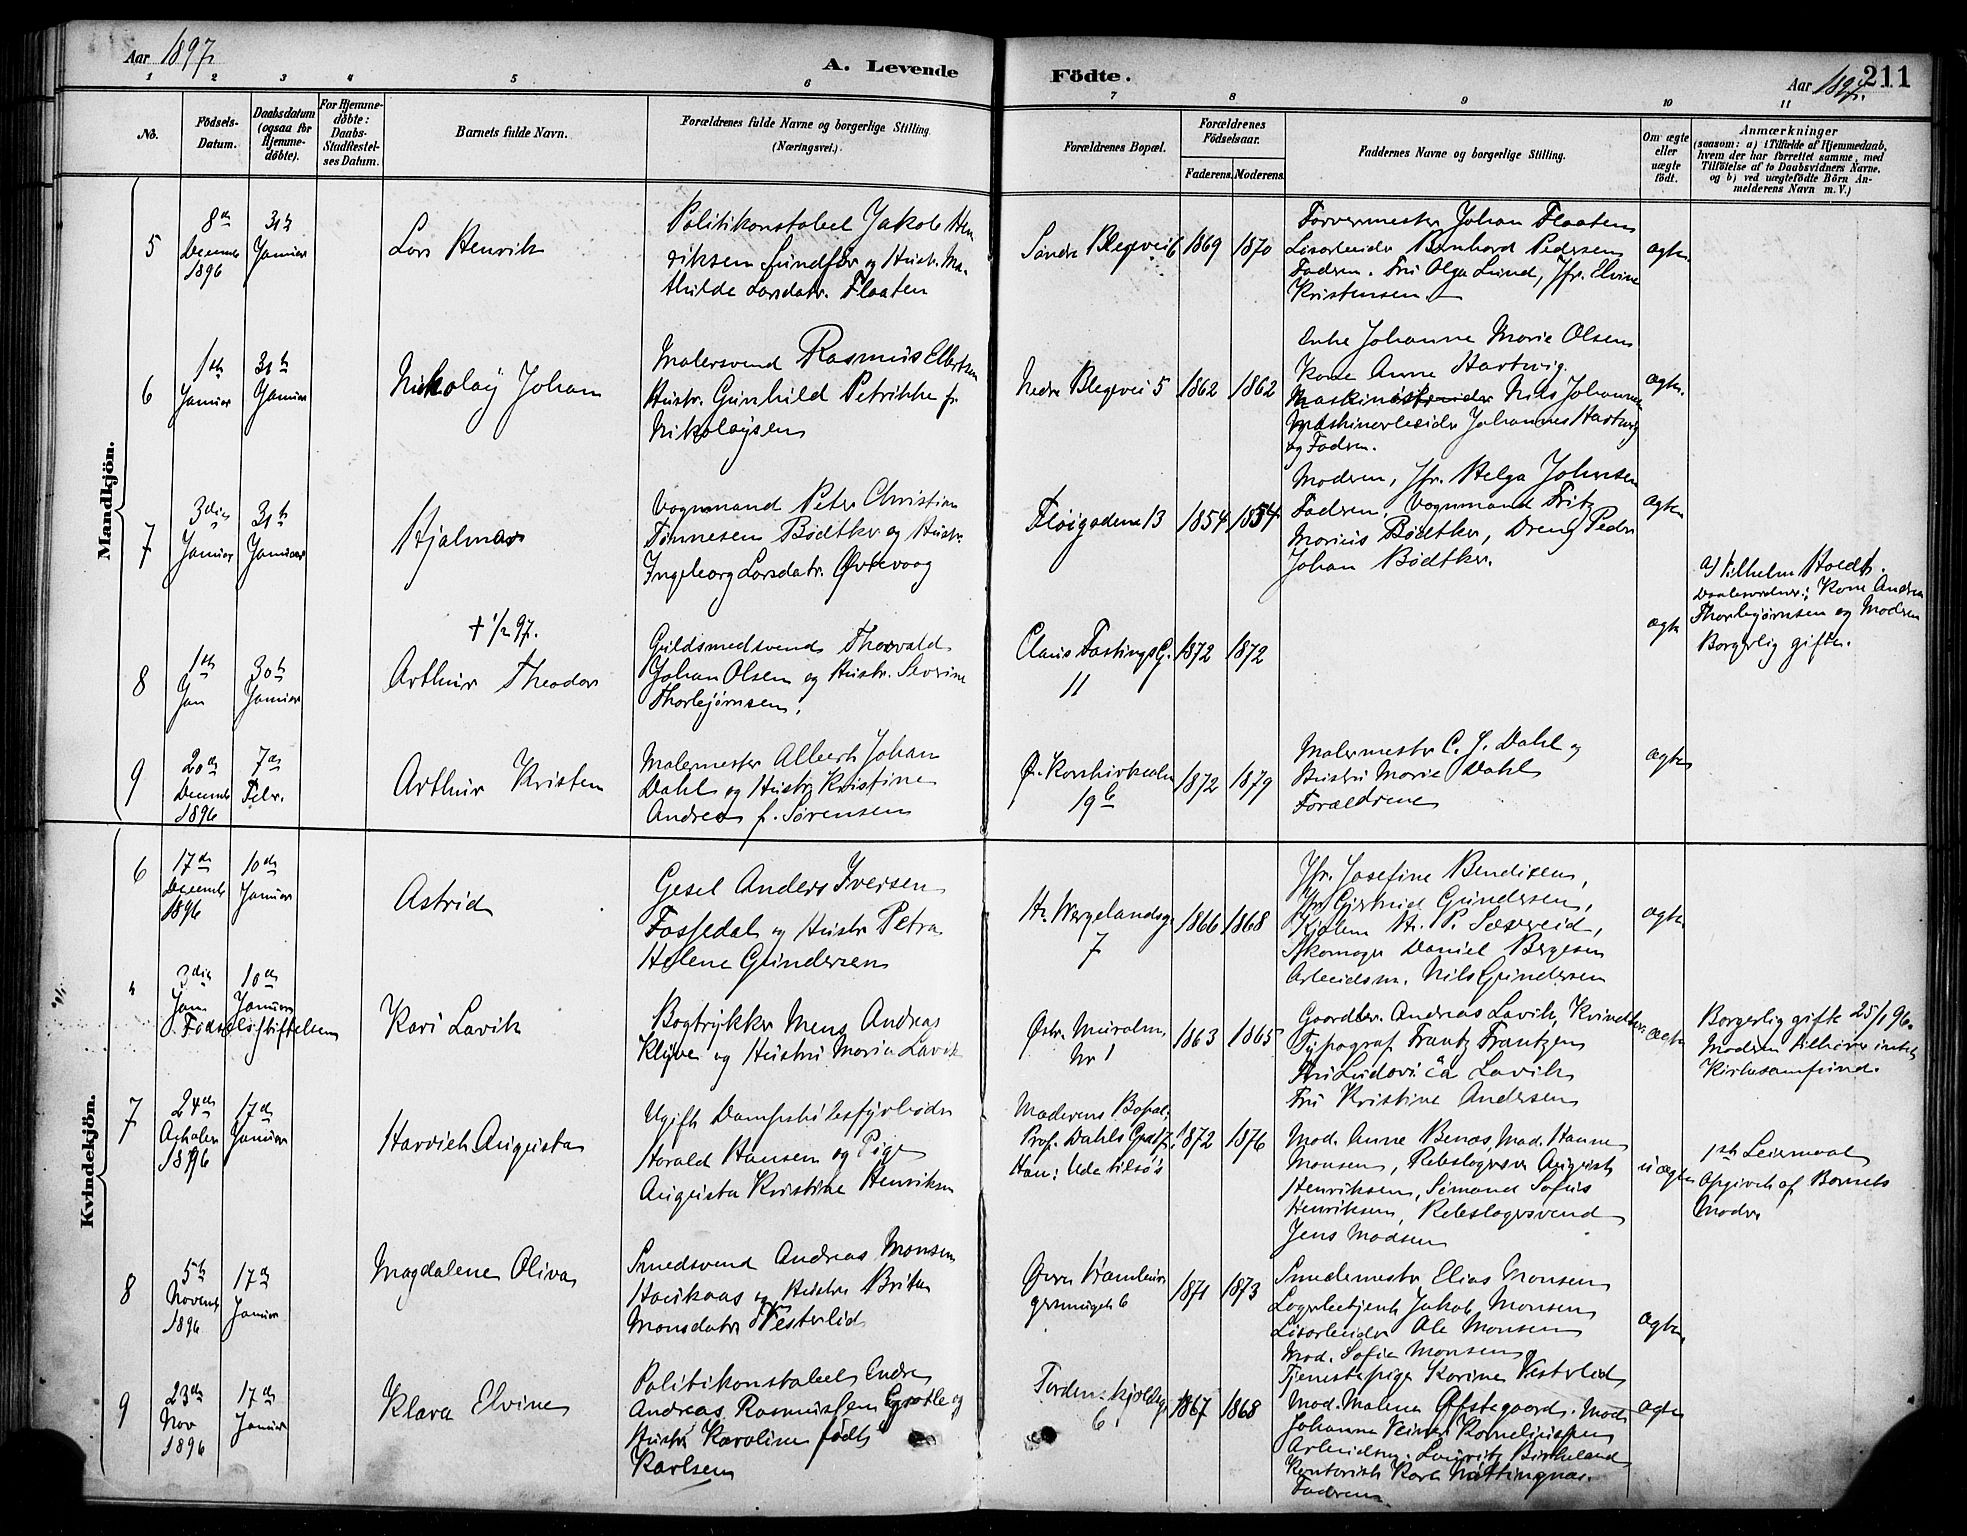 Aar 1897.
A. Levende
Födte.
Aar 1897.
211
1 2 3 4 5 6 7 8 9 10 11
No.
Födsels-
Datum.
Daabsdatum
(ogsaa for
Hjemme-
døbte).
For Hjemme-
døbte:
Daabs-
Stadfæstel-
ses Datum.
Barnets fulde Navn.
Forældrenes fulde Navne og borgerlige Stilling.
(Næringsvei.)
Forældrenes Bopæl.
Forældrenes
Födselsaar.
Faderens. Moderens.
Faddernes Navne og borgerlige Stilling.
Om ægte
eller
uægte
født.
Anmærkninger
(saasom: a) i Tilfælde af Hjemmedaab,
hvem der har forrettet samme, med
Tilföielse af to Daabsvidners Navne,
og b) ved uægtefödte Börn An-
melderens Navn m. V.)
Mandkjön.
5
8de
Decemb
1896
31te
Januar
Lars Henrik
Politikonstabel Jakob Hen
riksen Sundfør og Hustr. Ma-
thilde Larsdatr. Flaaten
Søndre Blegevei 6
1869
1870
Farvermester Johan Flaaten
Lisarbeider Bernhard Pedersen
Fadren. Fru Olga Lund, Jfr. Elvine
Kristensen
ægte.
6
1ste
Januar
31te
Januar
Nikolay Johan
Malersvend Rasmus Elbertsen
Hustr. Gunhild Petrikke f.
Nikolaysen
Nedre Blegevei 5
1862
1862
Enke Johanne Marie Olsen
Kone Anne Hartvig.
Nils Johannes
Maskinarbeider Johannes Hartvig
og Fadren.
ægte.
7
3die
Januar
31te
Januar
Hjalmar
Vognmand Peter Christian
Tönnesen Bødtker og Hustr.
Ingeborg Larsdatr. Øvrevaag
Fløigadene 13
1854
1854
Modren, Jfr. Helga Johnsen
Fadren, Vognmand Fritz
Marius Bødtker, Dreng Peder
Johan Bødtker.
ægte
8
1ste
Jan
30te
Januar
† 1/2 97.
Arthur Theodor
Guldsmedsvend Thorvald
Johan Olsen og Hustr. Severine
Thorbjørnsen.
Claus Fastings G.
11
1872
1872
ægte
af Vilhelm Hoedt.
Daabsvidner: Kone Andrea
Thorbjørnsen og Modren
Borgerlig gifte.
9
20de
Decemb
1896
7de
Febr.
Arthur Kristen
Malermester Albert Johan
Dahl og Hustr. Kristine
Andrea f. Sørensen
Ø. Korskirkealm
19b
1872
1879
Malermestr C. J. Dahl og
Hustru Marie Dahl
Forældrene
ægte
Kvindekjön.
6
17de
Decemb
1896
10de
Januar
Astrid
Gesel Anders Iversen
Fossedal og Hustr. Petra
Helene Gundersen
Hr. Wergelandsg.
7
1866
1868
Jfr. Josefine Bendixen,
Jfr. Gjertrud Gundersen,
H. P. Sævereid,
Skomager Daniel Bergesen
Arbeidsm. Nils Gundersen
ægte.
"
3die
Jan.
10de
Januar
Fødselsstiftelsen
Kari Lavik
Bogtrykker Mens Andreas
Klyve og Hustru Maria Lavik
Østre Muralm.
Nr 1
1863
1865
Gaardbr. Andreas Lavik, Kvindebr.
Typograf Frantz Frantzen
Fru Ludovica Lavik
Fru Kristine Andersen
ægte
Borgerlig gifte 25/1 96.
Modren tilhører intet
Kirkesamfund.
7
24de
1896
17de
Januar
Harvich Augusta
Ugift Dampskibsfyrbøder
Harald Hansen og Pige
Augusta Kristine Henriksen
Moderens Bopæl:
Prof. Dahls Gade 17,
Han: Ude tilsøs
1872
1876
Mad. Anne Benas, Mad. Hanne
Monsen, Rebslagersv. August
Henriksen, Sömand Sofus
Henriksen, Rebslagersvend
Jens Madsen
uægte
1ste Leiermaal
Opgivet af Barnets
Moder
8
5te
Novemb
1896
17de
Januar
Magdalene Oliva
Smedsvend Andreas Monsen
Haukaas og Hustru Brita
Monsdatr. Vesterlid
Øvre
gersmuget 6
1871
1873
Smedemestr Elias Monsen
Lagerbetjent Jakob Monsen
Lisarbeider Ole Monsen
Mad. Sofie Monsen
Tjenestepige Karine Vesterlid
ægte.
9
23de
Nov
1896
17de
Januar
Klara Elvine
Politikonstabel Endre
Andreas Rasmussen Grotle og
Hustr. Karoline født
Karlsen
Tordenskjoldsg.
6
1867
1868
Mad. Malena Ofstegaard. Mad.
Johanne Kornelius
Arbeidsm. Lauritz Birkeland
Kontorist Karl Nattingnæs.
Fadren.
ægte